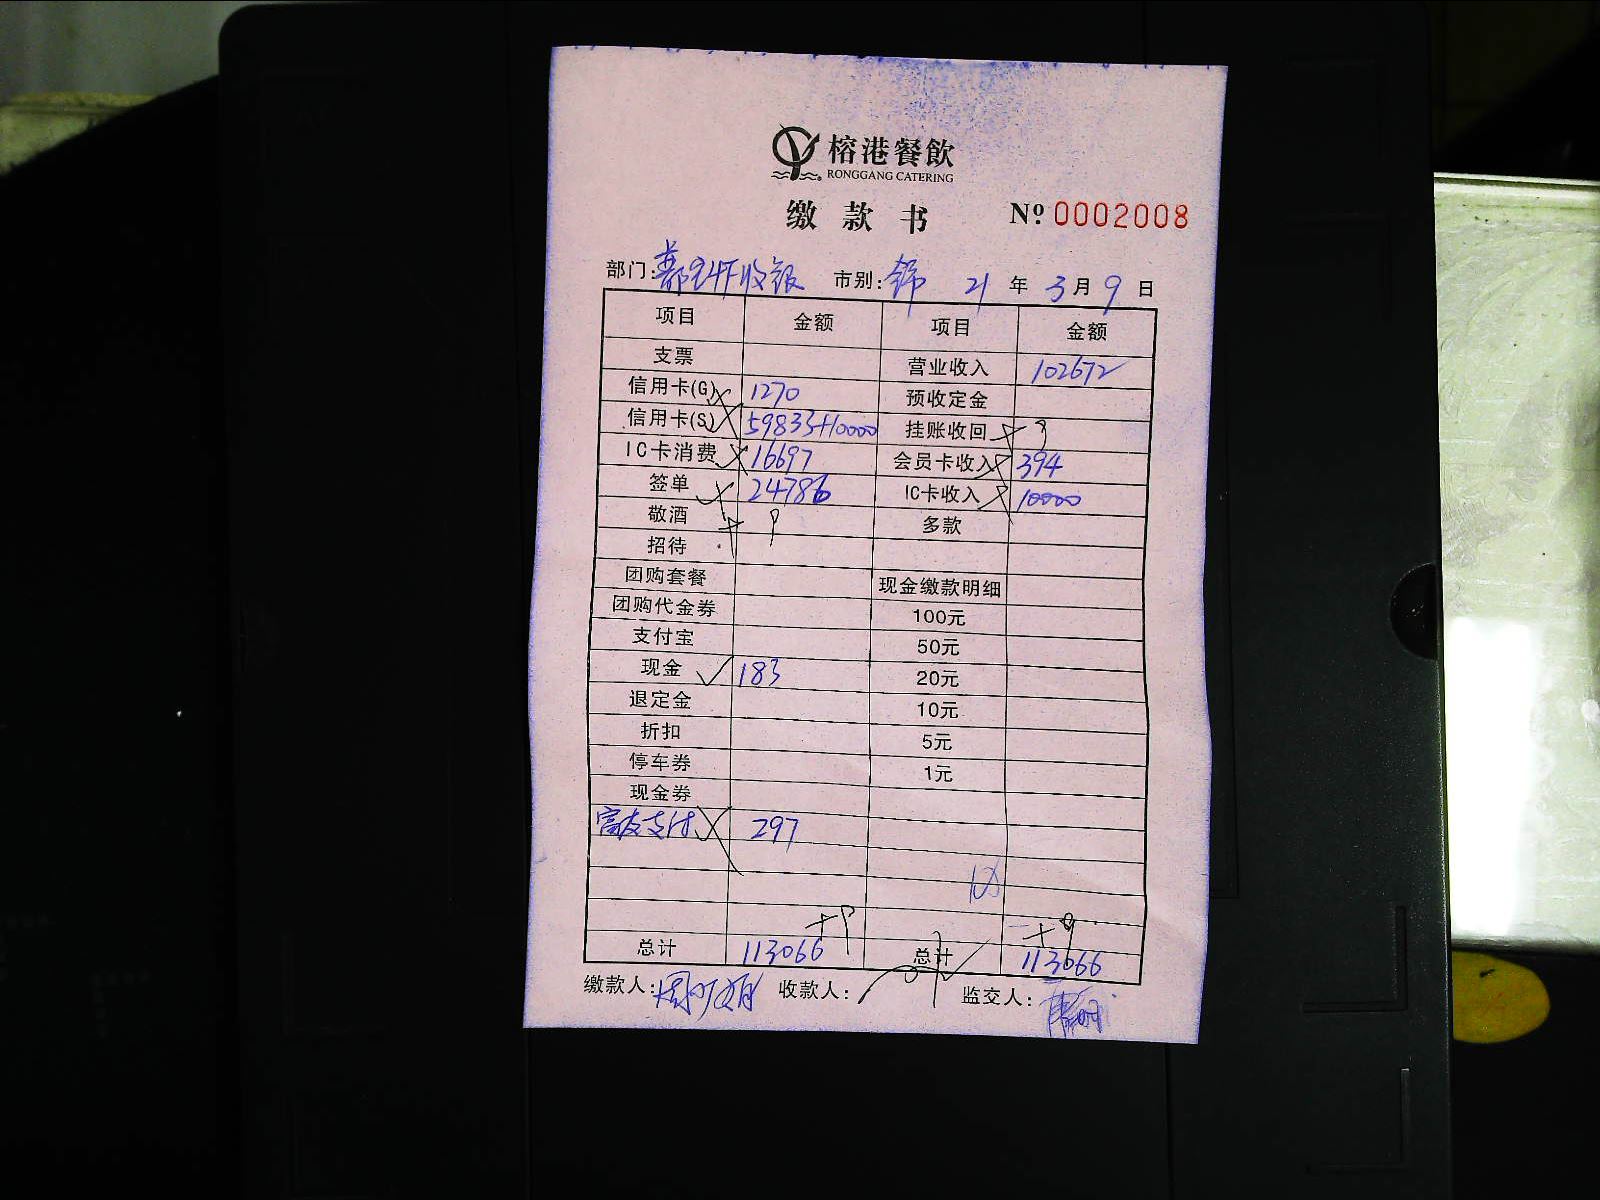 榕港餐飲
RONGGANG CATERING
缴款书 № 0002008
部门: 收银 市别: 21 年 3 月 9 日
项目 金额 项目 金额
支票 营业收入 102672
信用卡(G) 1270 预收定金
信用卡(S) 59833+10000 挂账收回
IC卡消费 16697 会员卡收入 394
签单 24786 IC卡收入 10000
敬酒 多款
招待
团购套餐 现金缴款明细
团购代金券 100元
支付宝 50元
现金 183 20元
退定金 10元
折扣 5元
停车券 1元
现金券
富友支付 297
总计 113066 总计 113066
缴款人: 收款人: 监交人: